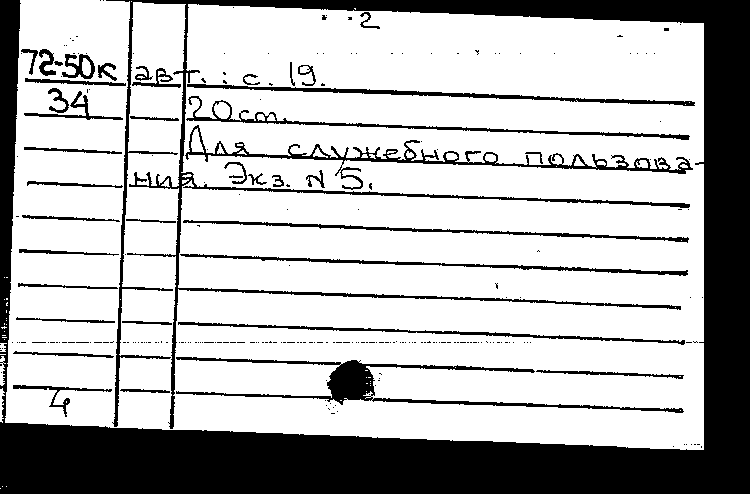 2
72-50к авт.: с. 19.
34 20 см.
Для служебного пользова-
ния. Экз. N 5.
4